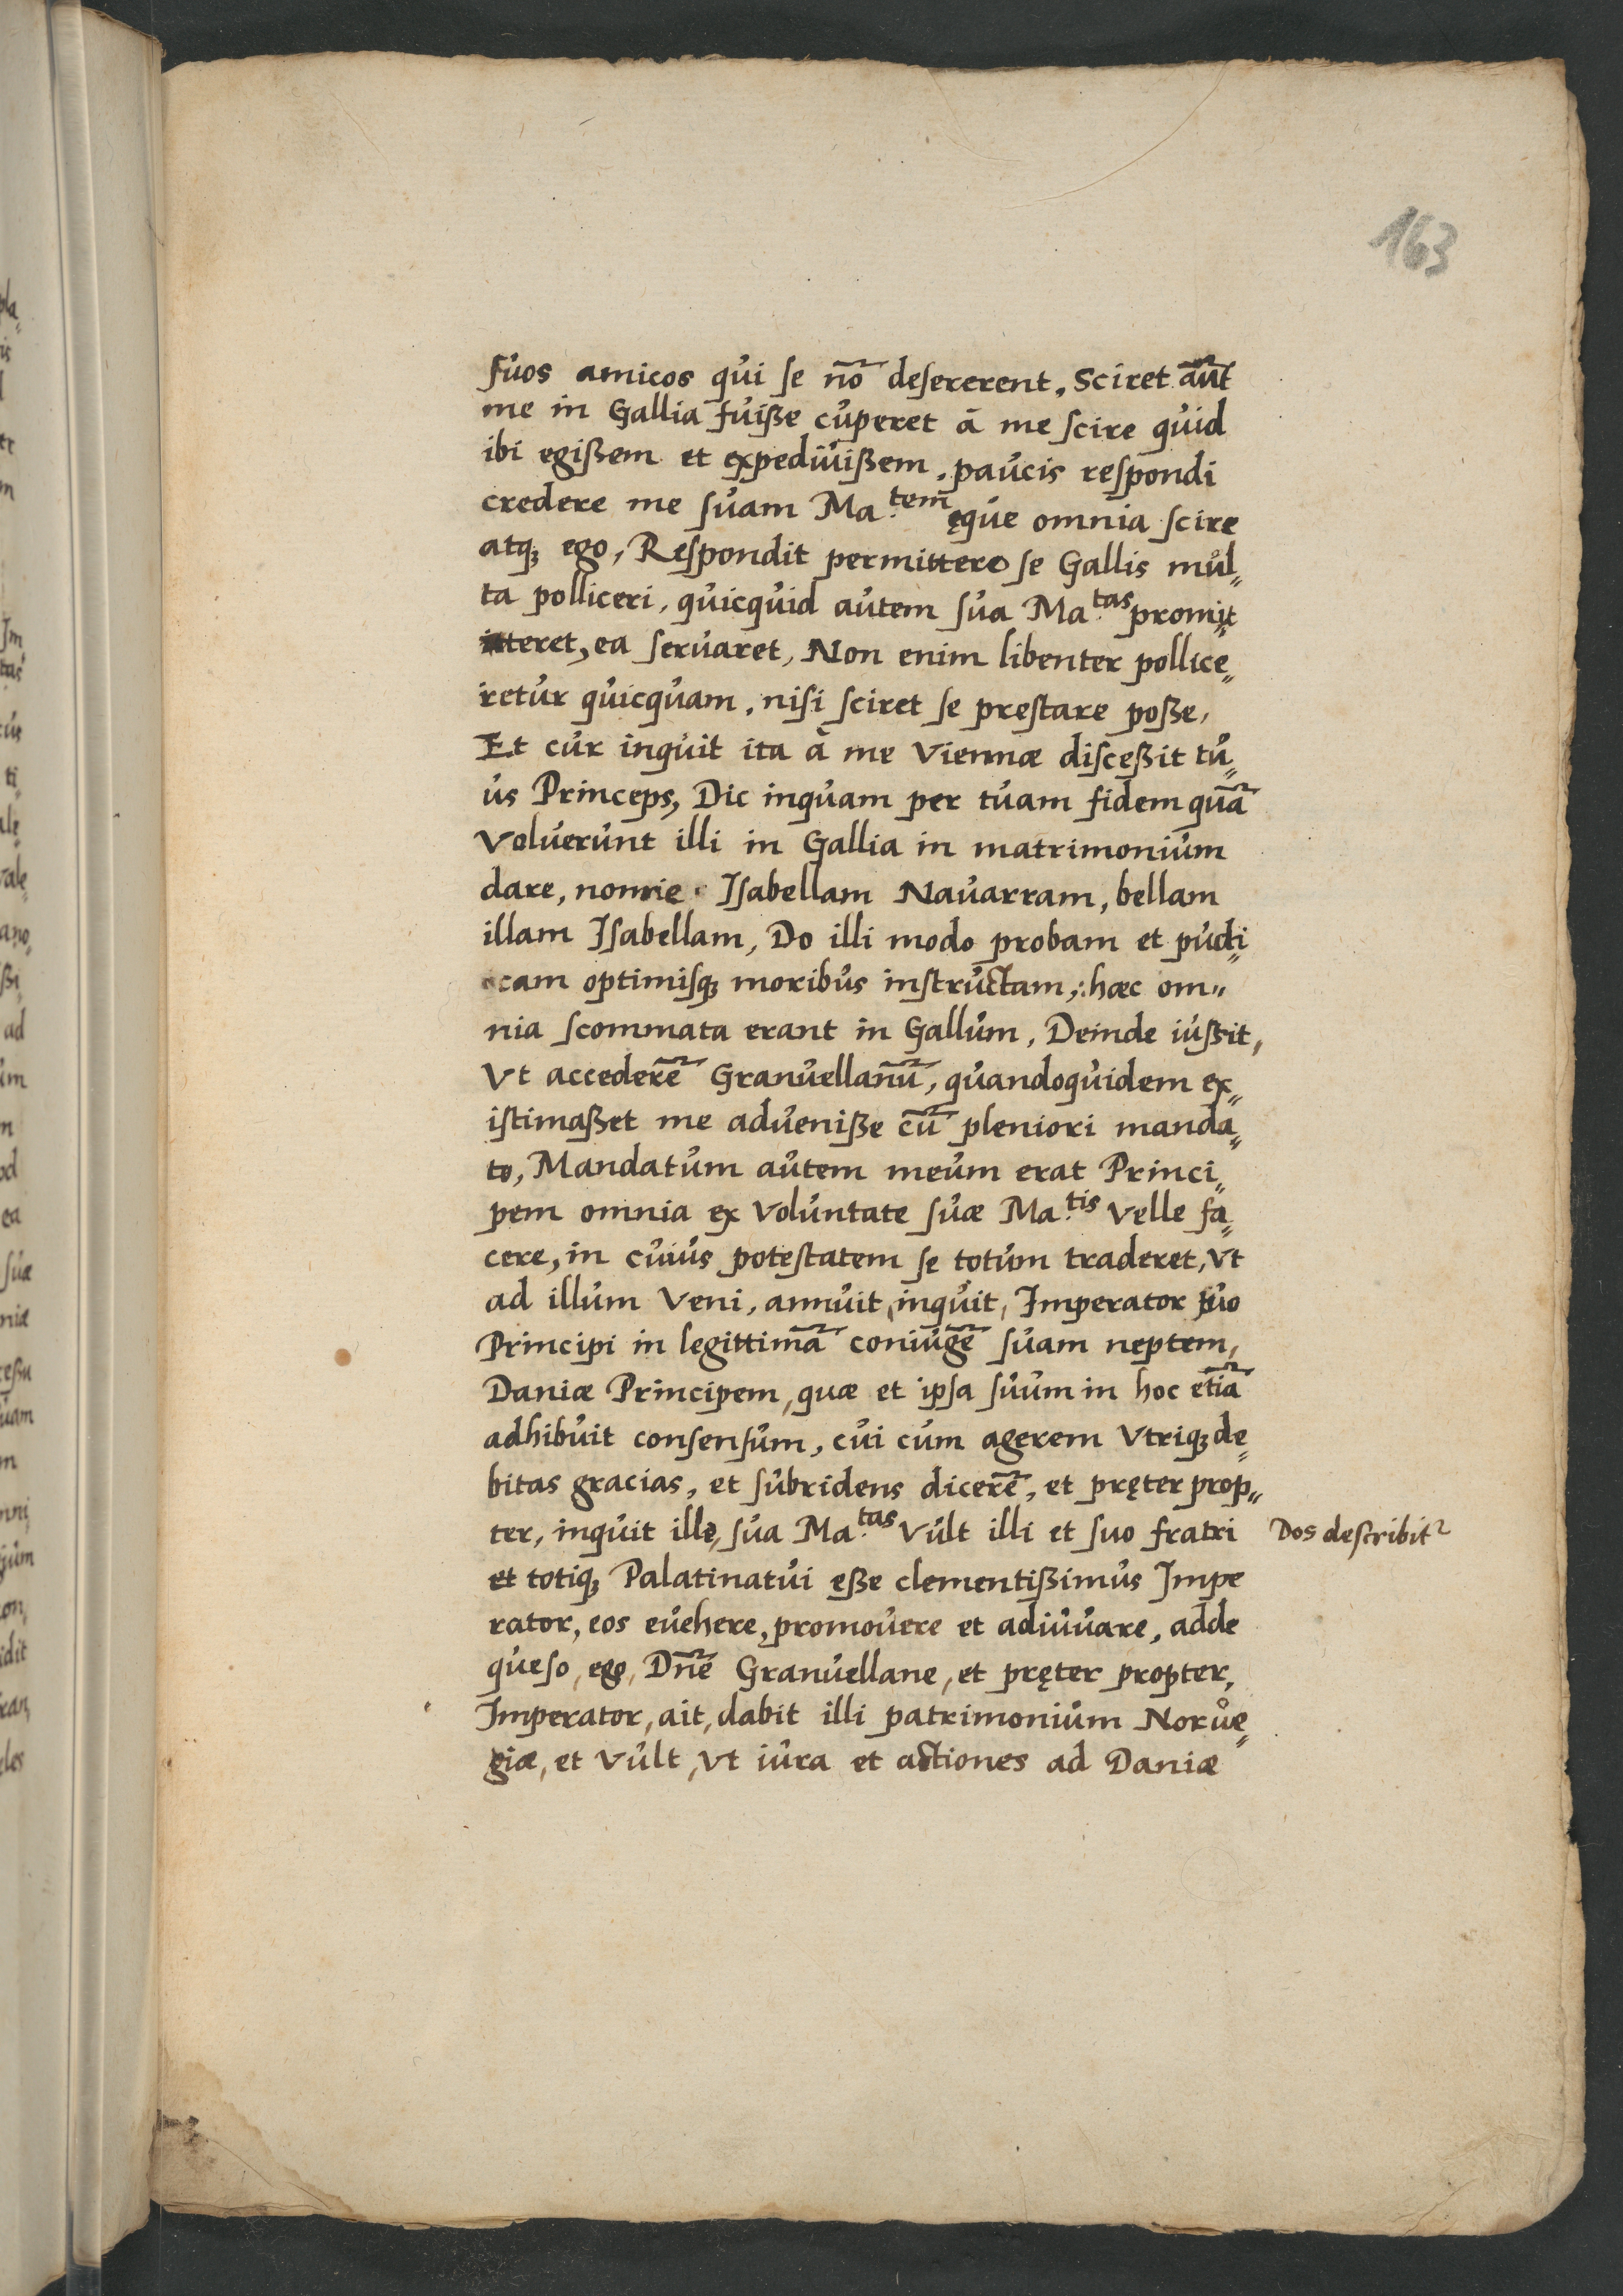 163
suos amicos qui se nō deserer̃ent, Sciret aũt
me in Gallia fuiße cuperet à me scire quid
ibi egißem et expediuißem, paucis respondi
credere me suam Ma.tem ęque omnia scire
atq; ego, Respondit permittere se Gallis mul„
ta polliceri, quicquid autem sua Ma.tas promit„
teret, ea seruaret, Non enim libenter pollice„
retur quicquam, nisi sciret se prestare poße,
Et cur inquit ita à me Viennæ disceßit tu„
us Princeps, Dic inquam per tuam fidem quā
Voluerunt illi in Gallia in matrimonium
dare, nonne Isabellam Nauarram, bellam
illam Isabellam, Do illi modo probam et pudi„
cam optimisq; moribus instructam, hæc om„
nia scommata erant in Gallum, Deinde iußit,
Vt accederē Granuellanū, quandoquidem ex„
istimaßet me adueniße cū pleniori manda„
to, Mandatum autem meum erat Princi„
pem omnia ex Voluntate suæ Ma.tis Velle fa„
cere, in cuius potestatem se totum traderet, Vt
ad illum Veni, annuit, inquit, Imperator tuo
Principi in legittimā coniugē suam neptem,
Daniæ Principem, quæ et ipsa suum in hoc etiā
adhibuit consensum, cui cum agerem Vtriq; de„
bitas gracias, et subridens dicerē, et pręter prop„
ter, inquit ille, sua Ma.tas Vult illi et suo fratri
et totiq; Palatinatui eße clementißimus Impe
rator, eos euehere, promouere et adiuuare, adde
queso, ego, Dnē Granuellane, et pręter propter,
Imperator, ait, dabit illi patrimonium Norue„
giæ, et Vult, Vt iura et actiones ad Daniæ
Dos describit²